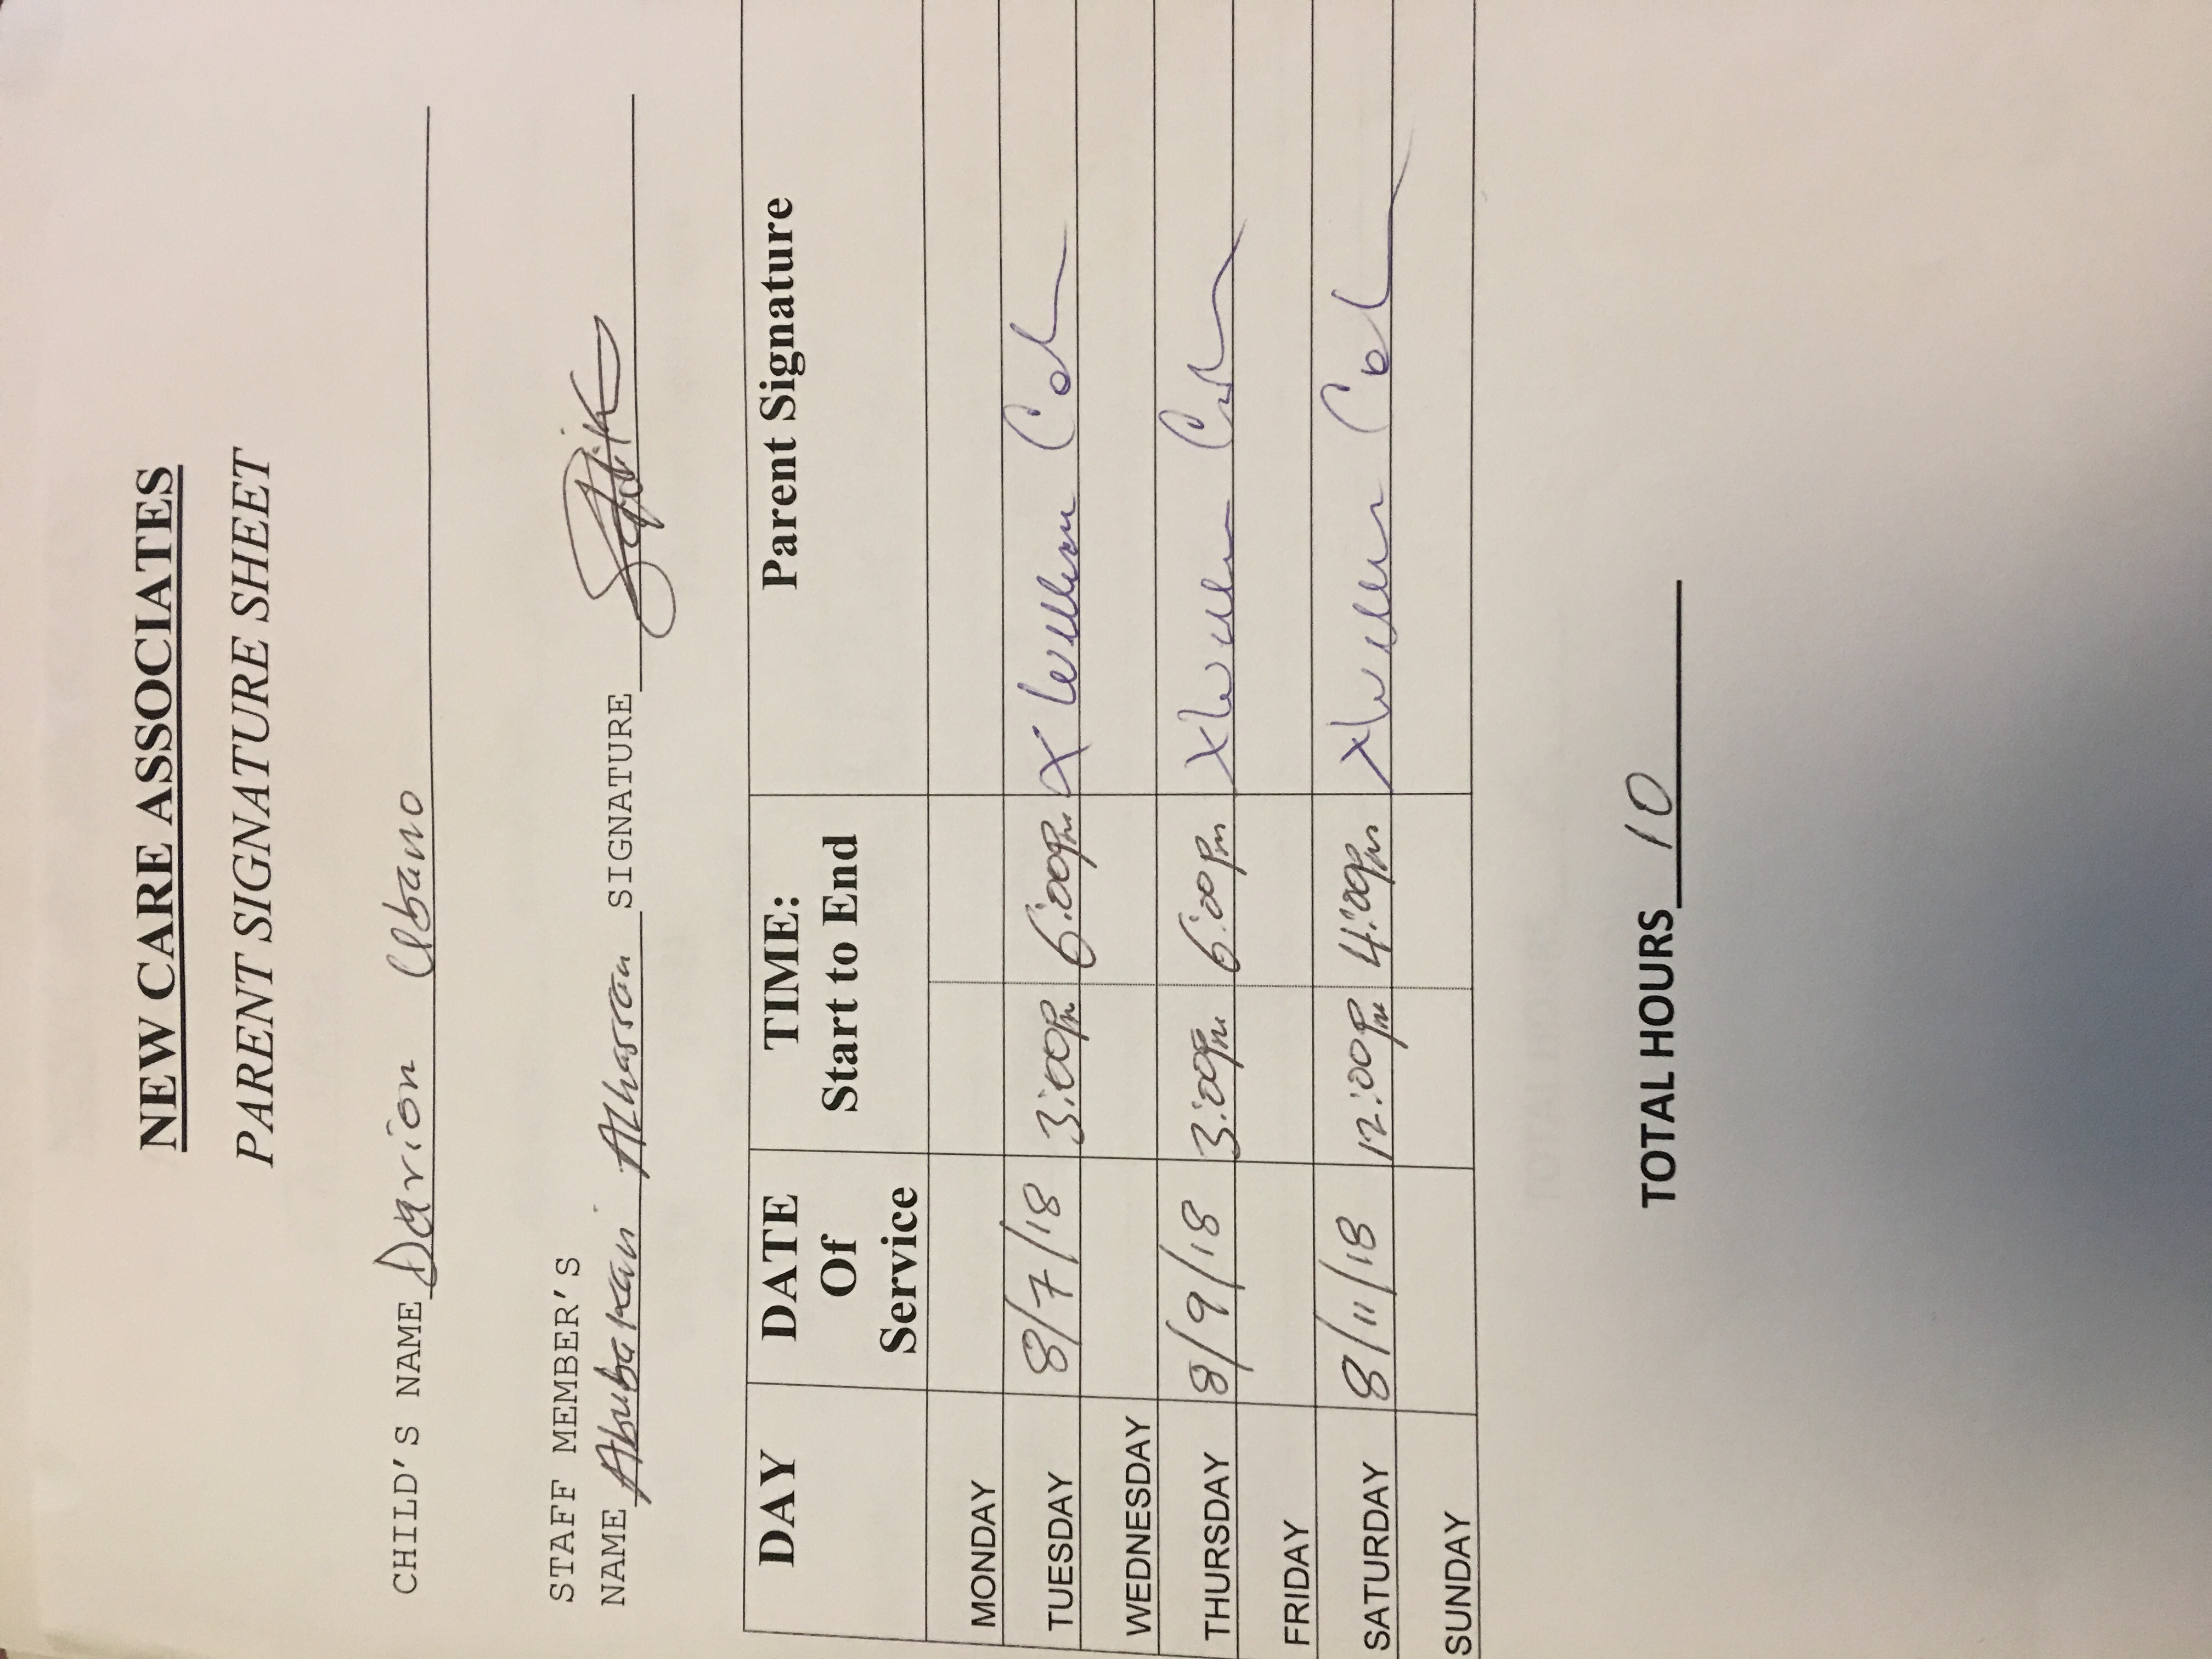 NEW CARE ASSOCIATES
PARENT SIGNATURE SHEET
CHILD'S NAME Darion Ubano
STAFF MEMBER'S
NAME Abubakari Alhassan SIGNATURE
DAY DATE Of Service TIME: Start to End Parent Signature
MONDAY
TUESDAY 8/7/18 3:00pm 6:00pm X William
WEDNESDAY
THURSDAY 8/9/18 3:00pm 6:00pm X William
FRIDAY
SATURDAY 8/11/18 12:00pm 4:00pm X William
SUNDAY
TOTAL HOURS 10